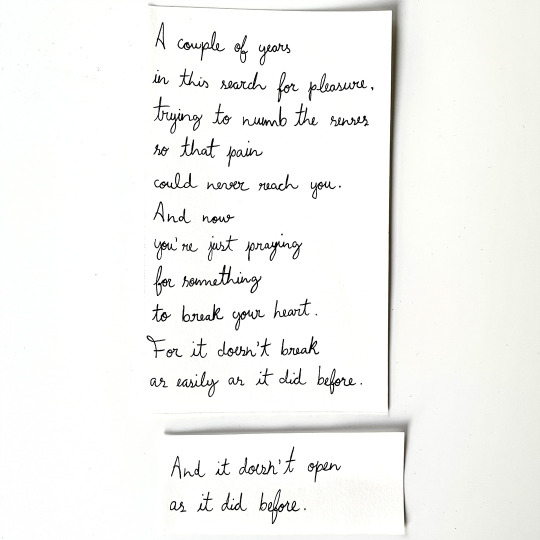 A couple of years
in this search for pleasure,
trying to numb the senses
so that pain
could never reach you.
And now
you're just praying
for something
to break your heart.
For it doesn't break
as easily as it did before.
And it doesn't open
as it did before.